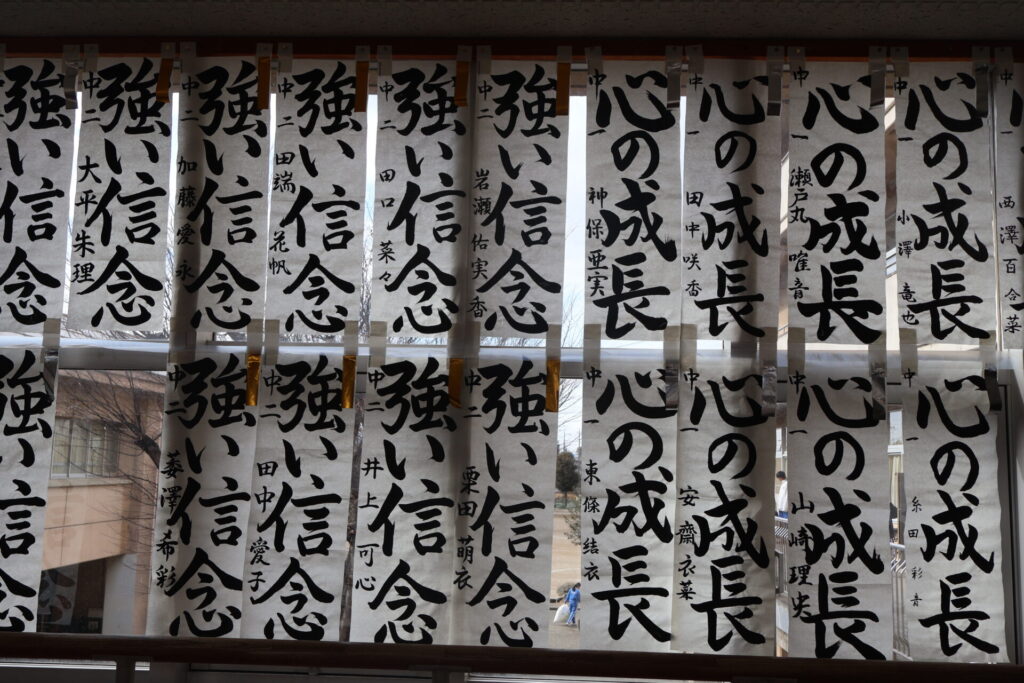 中一 西澤百合菜
心の成長
中一 小澤竜也
心の成長
中一 瀬戸丸唯音
心の成長
中一 田中咲香
心の成長
中一 神保亜実
強い信念
中二 岩瀬佑実香
強い信念
中二 田口菜々
強い信念
中二 田端花帆
強い信念
中二 加藤愛永
強い信念
中二 大平朱理
強い信念
心の成長
中一 糸田彩音
心の成長
中一 山崎理央
心の成長
中一 安齋衣菜
心の成長
中一 東條結衣
強い信念
中二 栗田萌衣
強い信念
中二 井上可心
強い信念
中二 田中愛子
強い信念
中二 希彩
強い信念